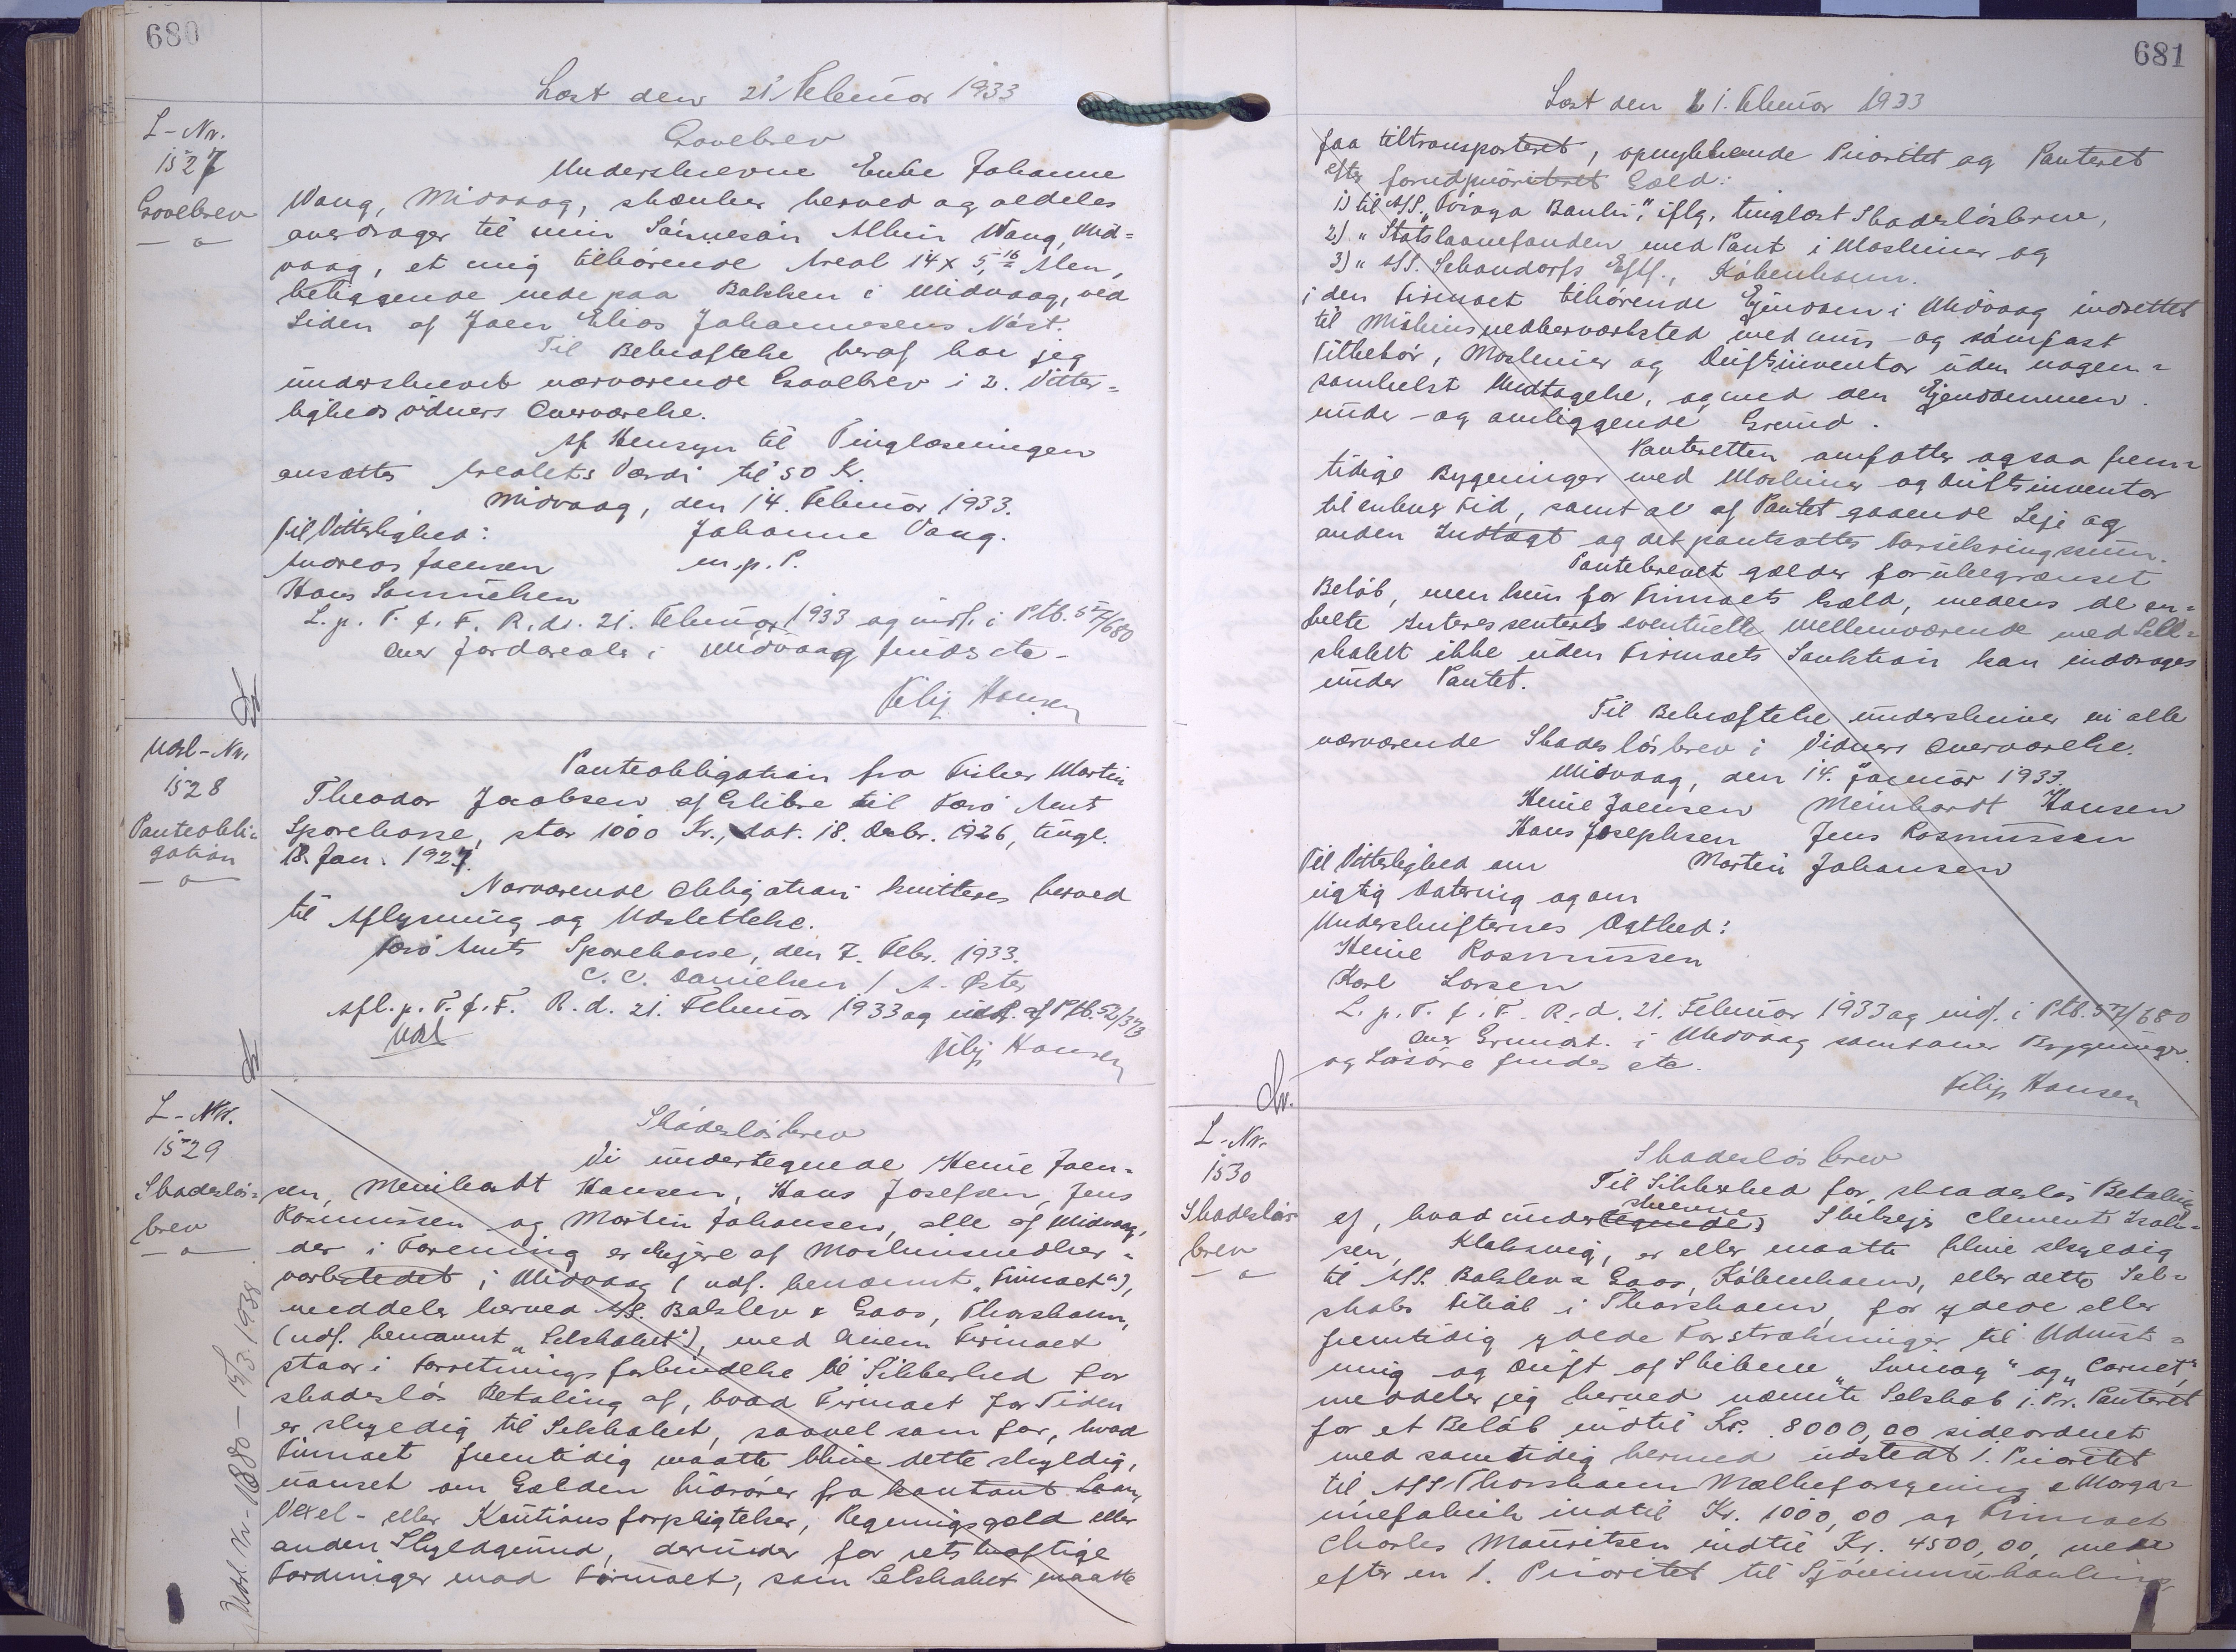 680
Læst den 21 Februar 1933
L-Nr.
1527
Gavebrev
Gavebrev
Underskrevne Enke Johanne
Vang, Midvaag, skænker herved og aldeles
overdrager til min Sønnesøn Albin Vang, Mid=
vaag, et mig tilhørende Areal 14 x 5,16 Alen,
beliggende nede paa Bakken i Midvaag, ved
Siden af Joen Elias Johannesens Nøst.
Til Bekræftelse heraf har jeg
underskrevet nærværende Gavebrev i 2. Vitter=
lighedsvidners Overværelse.
Af Hensyn til Tinglæsningen
ansættes Arealets Værdi til 50 Kr.
Midvaag, den 14. Februar 1933.
Til Vitterlighed:
Johanne Vang.
Andreas Joensen
m.p.P.
Hans Samuelsen
L. p. T. f. F. R. d. 21. Februar 1933 og indf. i Ptb. 57/680
Over Jordarealer i Midvaag findes etc -
Filip Hansen
Udsl-Nr.
1528
Panteobli=
gation
Panteobligation fra Fisker Martin
Theodor Jacobsen af Glibre til Færø Amts
Sparekasse, stor 1000 Kr., dat. 18. Decbr. 1926, tingl.
18. Jan. 1927.
Nærværende Obligation kvitteres herved
til Aflysning og Udslettelse.
Færø Amts Sparekasse, den 7. Febr. 1933.
C. C. Danielsen / A. Øster
Afl. p. T. f. F. R. d. 21. Februar 1933 og udsl. af Ptb. 52/373
Udsl
Filip Hansen
L-Nr.
1529
Skadesløs=
brev
Udsl. Nr. 1880 - 15/3. 1938.
Skadesløsbrev
Vi undertegnede Heine Joen=
sen, Meinhardt Hansen, Hans Josefsen, Jens
Rasmussen og Martin Johansen, alle af Midvaag,
der i Forening er Ejere af Maskinsnedker=
værkstedet i Midvaag (udf. benævnt "Firmaet"),
meddeler herved A/S. Balslev & Gaos, Thorshavn,
(udf. benævnt "Selskabet"), med hvem Firmaet
staar i Forretningsforbindelse til Sikkerhed for
skadesløs Betaling af, hvad Firmaet for Tiden
er skyldig til Selskabet, saavel som for, hvad
Firmaet fremtidig maatte blive dette skyldig,
uanset om Gælden hidrører fra kontant Laan,
Vexel- eller Kautionsforpligtelser, Regningsgæld eller
anden Skyldgrund, derunder for retskraftige
Fordringer mod Firmaet, som Selskabet maatte
681
Læst den 21. Februar 1933
faa tiltransporteret, oprykkende Prioritet og Panteret
efter forudprioriteret Gæld:
1) til A/S. "Föroya Banki", iflg. tinglæst Skadesløsbrev,
2) " Statslaanefonden med Pant i Maskiner og
3) " A/S. Schandorfs Eftf., København.
i den Firmaet tilhørende Ejendom i Midvaag indrettet
til Maskinsnedkerværksted med mur- og sømfast
Tilbehør, Maskiner og Driftsinventar uden nogen=
somhelst Undtagelse, og med den Ejendommen
under- og omliggende Grund.
Panteretten omfatter ogsaa frem=
tidige Bygninger med Maskiner og Driftsinventar
til enhver Tid, samt al af Pantet gaaende Leje og
anden Indtægt og det pantsattes Forsikringssum.
Pantebrevet gælder for ubegrænset
Beløb, men kun for Firmaets Gæld, medens de en=
kelte Interessenters eventuelle Mellemværende med Sel=
skabet ikke uden Firmaets Sanktion kan inddrages
under Pantet.
Til Bekræftelse underskriver vi alle
nærværende Skadesløsbrev i Vidners Overværelse.
Midvaag, den 14. Januar 1933.
Heine Joensen Meinhardt Hansen
Hans Josephsen Jens Rasmussen
Til Vitterlighed om
Martin Johansen
rigtig Datering og om
Underskrifternes Ægthed:
Heine Rasmussen
Karl Larsen
L. p. T. f. F. R. d. 21. Februar 1933 og indf. i Ptb. 57/680
Over Grundst. i Midvaag samt over Bygninger
og Løsøre findes etc.
Filip Hansen
L-Nr.
1530
Skadesløs=
brev
Skadesløsbrev
Til Sikkerhed for skadesløs Betaling
skrevne
af, hvad undertegnede Skibsejer Clement Isak=
sen, Klaksvig, er eller maatte blive skyldig
til A/S. Balslev & Gaos, København, eller dette Sel=
skabs Filial i Thorshavn, for ydede eller
fremtidig ydede Forstrækninger til Udrust=
ning og Drift af Skibene "Suduroy" og "Carnet",
meddeler jeg herved nævnte Selskab 1. Pr. Panteret
for et Beløb indtil Kr. 8000,00 sideordnet
med samtidig hermed udstedt 1. Prioritet
til A/S Thorshavn Mælkeforsyning & Marga=
rinefabrik indtil Kr. 1000,00 og Firmaet
Charles Mauritsen indtil Kr. 4500,00, men
efter en 1. Prioritet til Sjóvinnubankin